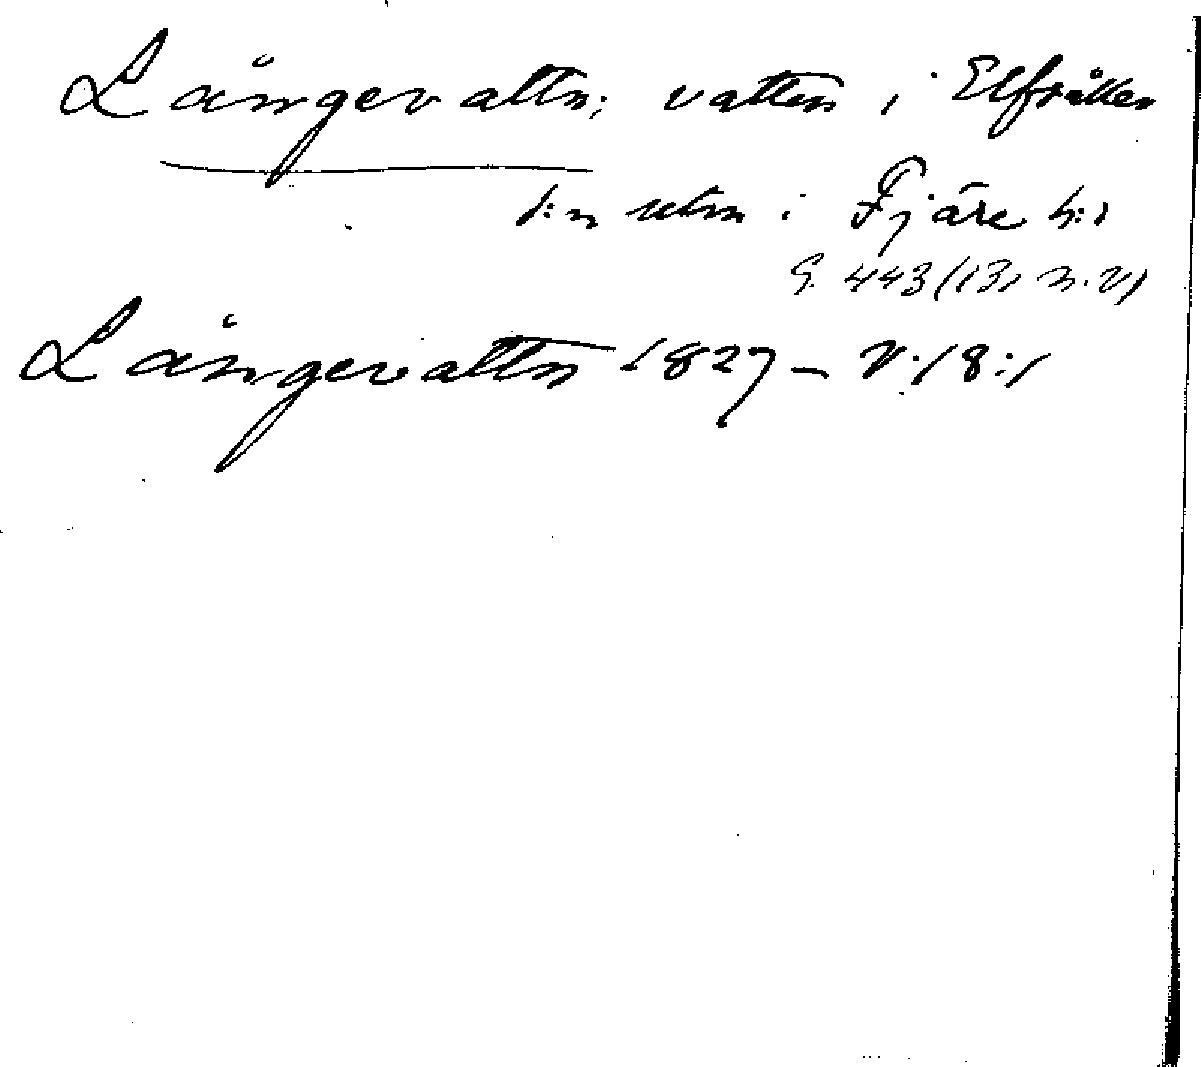 Långevattn; vatten i Elfsåker
s:n utm i Fjäre h:d
G. 443 (13, n.v)
Långevattn 1827 - V:18:1